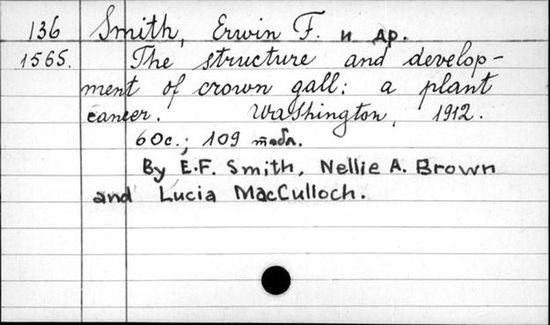 136 Smith, Erwin F. и др.
1565. The structure and develop-
ment of crown gall: a plant
cancer. Washington, 1912.
60с.; 109 табл.
By E.F. Smith, Nellie A. Brown
and Lucia MacCulloch.